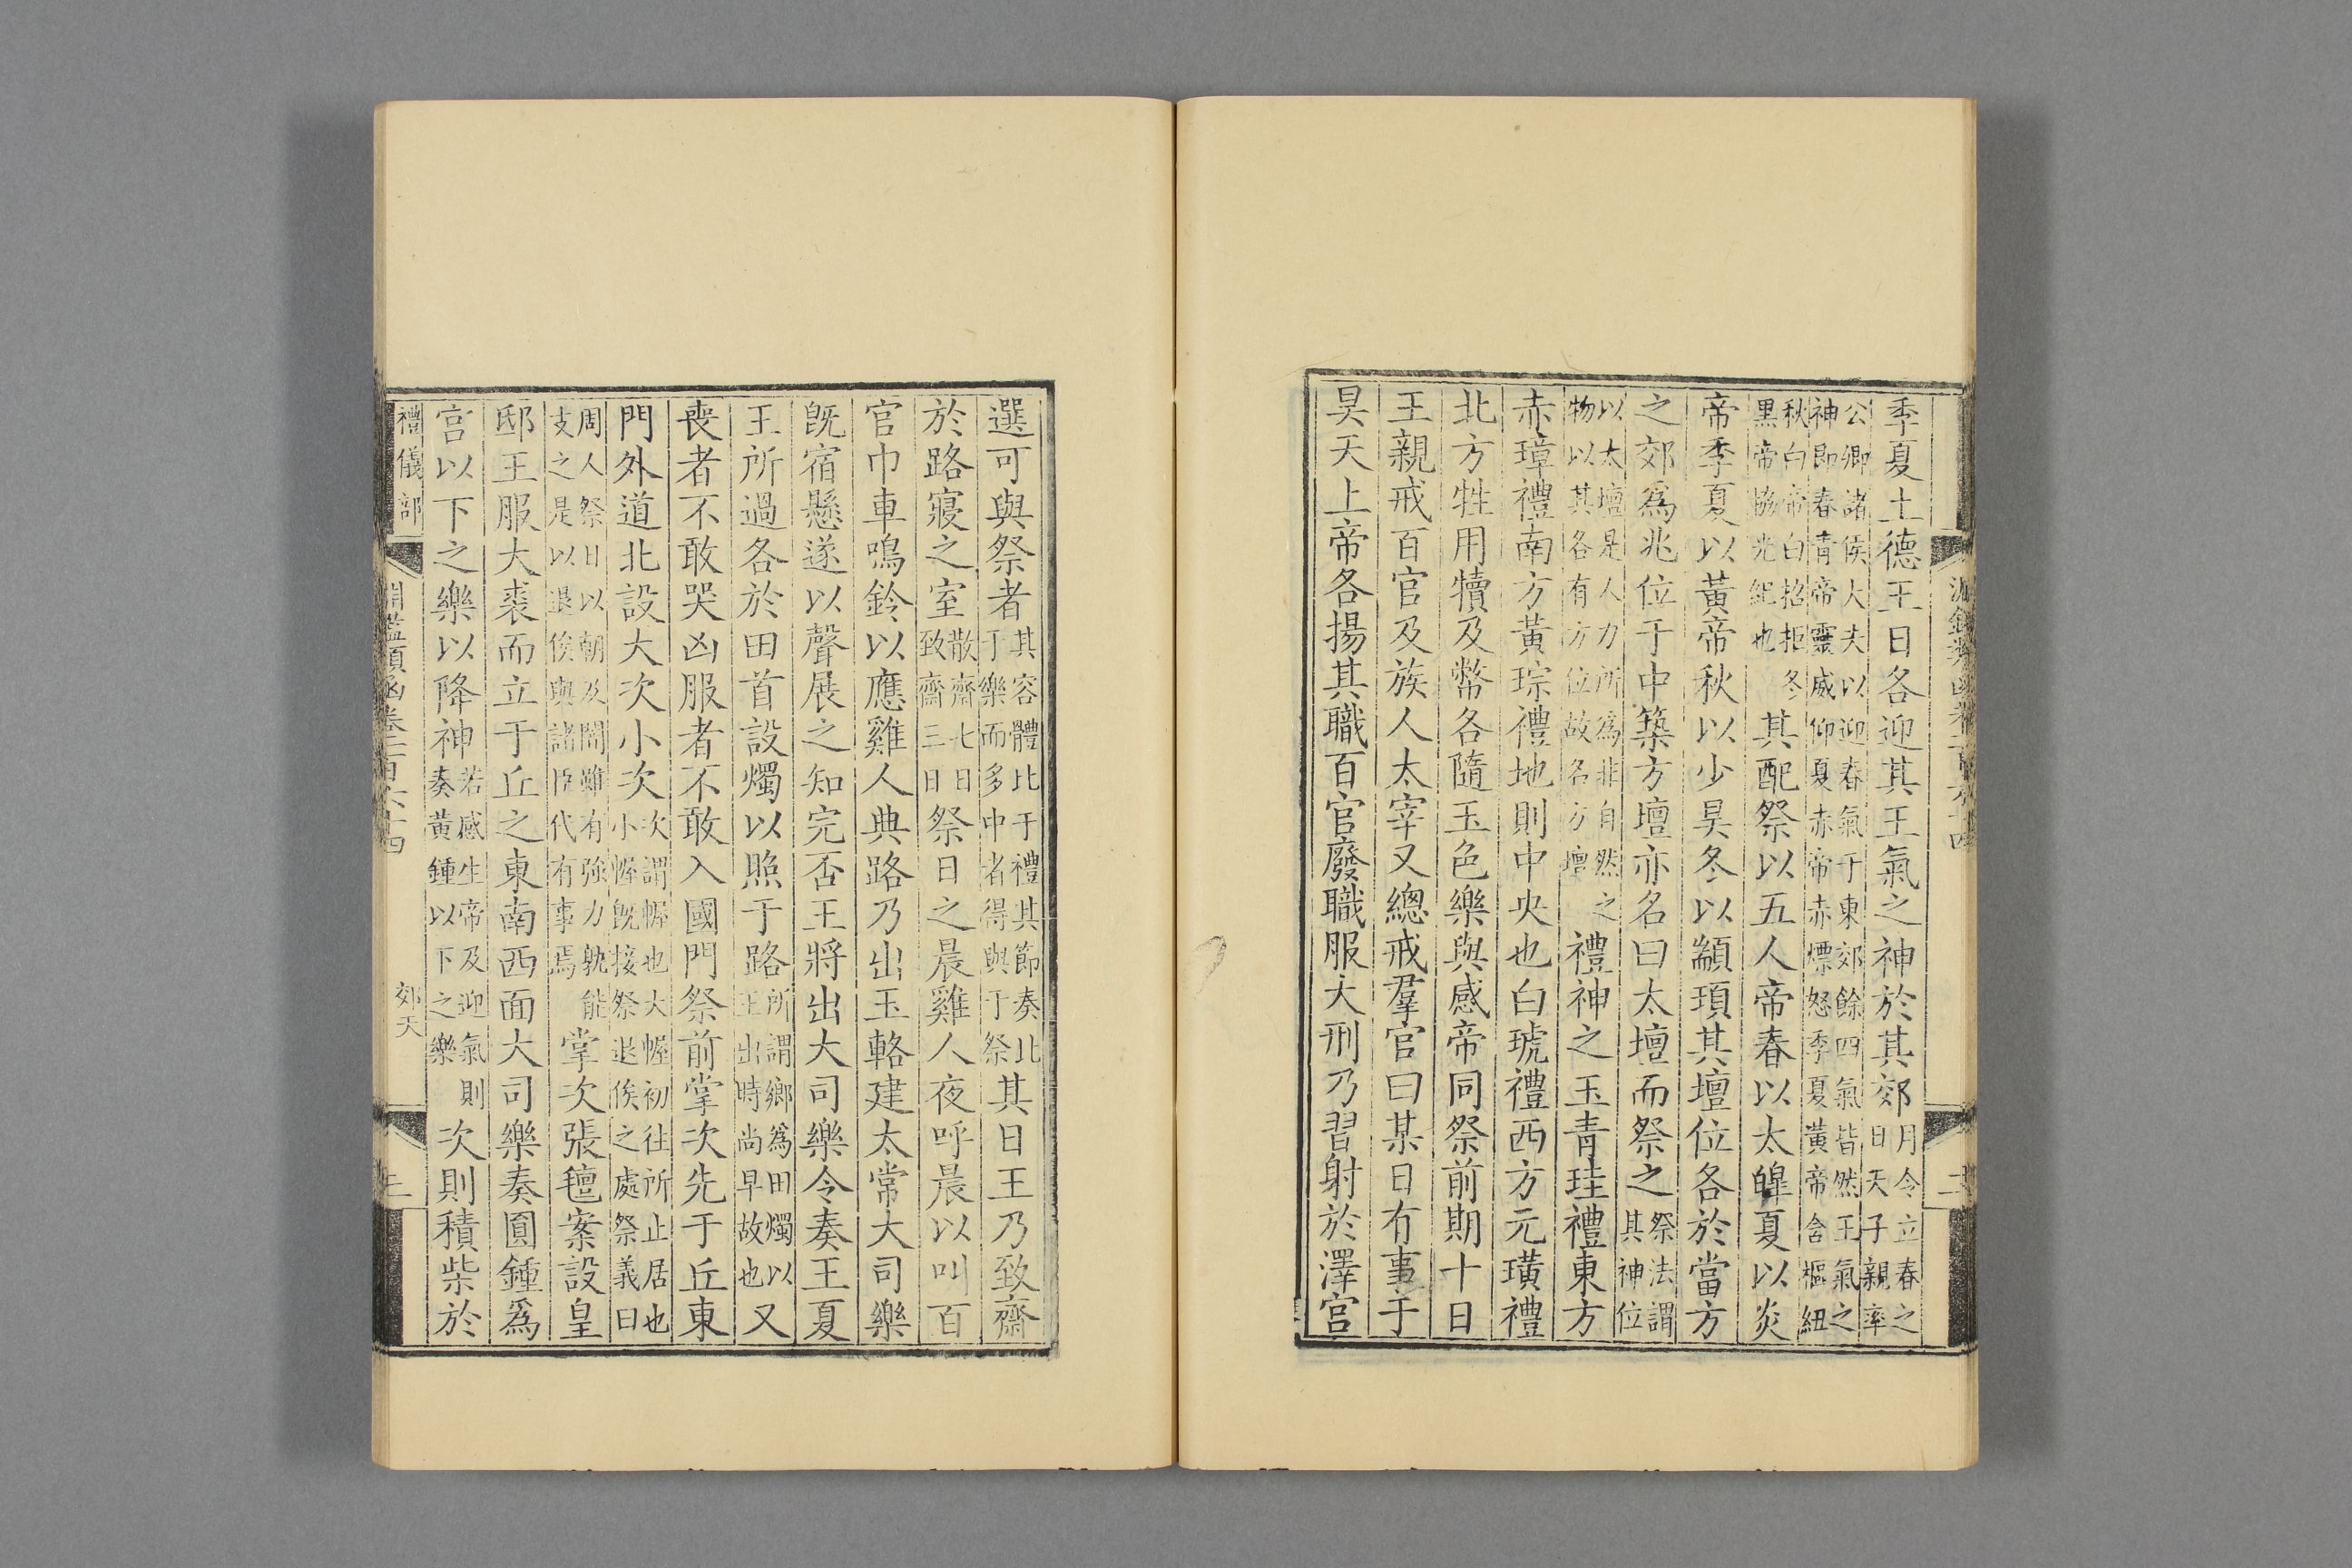 季夏土德王日各迎其王氣之神於其郊月令立春之日天子親率
公卿諸侯大夫以迎春氣于東郊餘四氣皆然王氣之神即春青帝靈威仰夏赤帝赤熛怒季夏黃帝含樞紐
秋白帝白招拒冬黑帝協光紀也其配祭以五人帝春以太皥夏以炎
帝季夏以黃帝秋以少昊冬以顓頊其壇位各於當方
之郊爲兆位于中築方壇亦名曰太壇而祭之祭法謂其神位
以太壇是人力所爲非自然之物以其各有方位故名方壇禮神之玉青珪禮東方
赤璋禮南方黃琮禮地則中央也白琥禮西方元璜禮
北方牲用犢及幣各隨玉色樂與感帝同祭前期十日
王親戒百官及族人太宰又總戒羣官曰某日有事于
昊天上帝各揚其職百官廢職服大刑乃習射於澤宮
選可與祭者其容體比于禮其節奏比于樂而多中者得與于祭其日王乃致齋
於路寢之室散齋七日致齋三日祭日之晨雞人夜呼晨以叫百
官巾車鳴鈴以應雞人典路乃出玉輅建太常大司樂
旣宿懸遂以聲展之知完否王將出大司樂令奏王夏
王所過各於田首設燭以照于路所謂鄉爲田燭以王出時尚早故也又
喪者不敢哭凶服者不敢入國門祭前掌次先于丘東
門外道北設大次小次次謂幄也大幄初往所止居也小幄旣接祭退俟之處祭義曰
周人祭日以朝及闇雖有強力孰能支之是以退俟與諸臣代有事焉掌次張氊案設皇
邸王服大裘而立于丘之東南西面大司樂奏圓鍾爲
宮以下之樂以降神若感生帝及迎氣則奏黃鍾以下之樂次則積柴於
禮儀部 淵鑑類函卷二百六十四 郊天 三